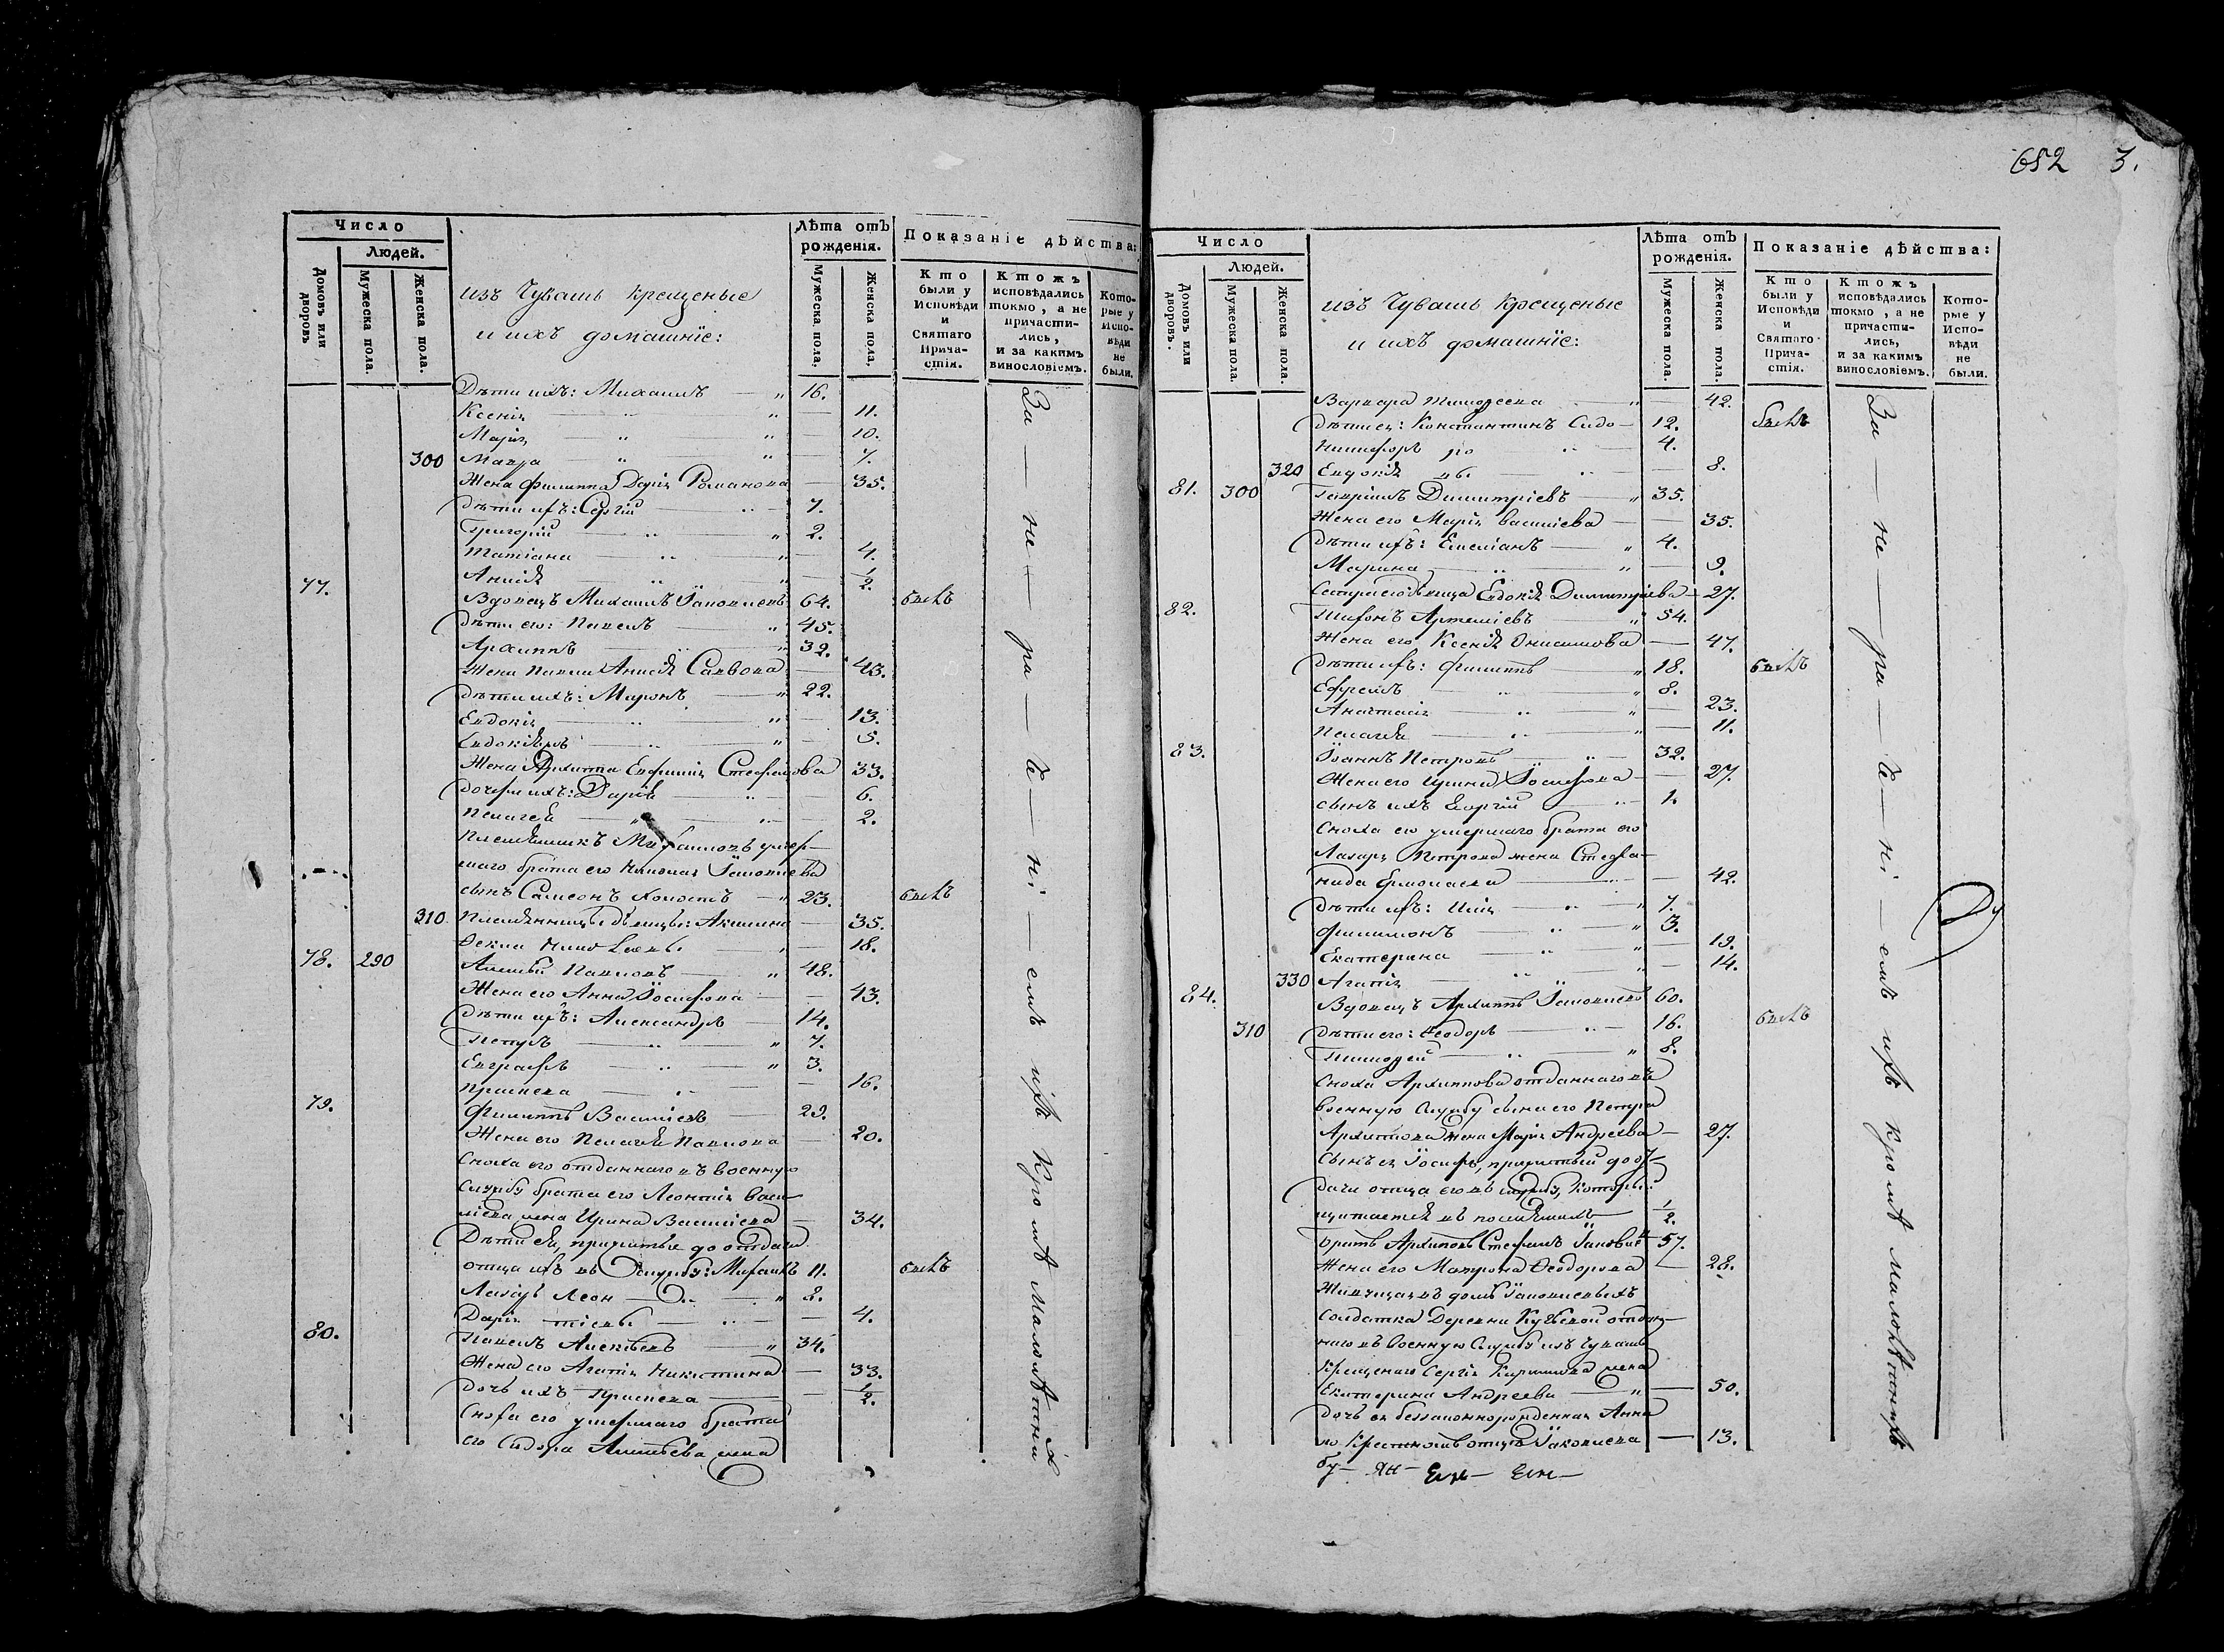 652 3.
Число
Людей.
Домовъ или дворовъ
Мужеска пола.
Женска пола.
изъ Чувашъ крещеные
и ихъ домашніе:
Лѣта отъ рожденія.
Мужеска пола.
Женска пола.
Показаніе дѣйства:
Кто были у Исповѣди и Святаго Прича-стія.
Ктожъ исповѣдались токмо, а не причасти-лись, и за какимъ винословіемъ.
Кото-рые у Испо-вѣди не были.
Дѣти ихъ: Михаилъ — „ 16.
Ксенія „ — 11.
Марія — „ „ — 10.
300 Мавра — „ „ — 7.
Жена Филиппа Дарія Романова — 35.
Дѣти ихъ: Сергій — 7.
Григорій — „ 2.
Татіана — „ — 4.
Анисія — „ — 1/2.
77. Вдовецъ Михаилъ Іаковлевъ 64. былъ
Дѣти его: Павелъ — „ 45.
Архиппъ — 32.
Жена Павла Анисія Саввова — 43.
Дѣти ихъ: Маронъ — „ 22.
Евдокія — „ — 13.
Евдокія — „ — 5.
Жена Архиппа Евфимія Стефанова 33.
Дочери ихъ: Дарія — 6.
Пелагея — „ — 2.
Племянникъ Михаиловъ умер-
шаго брата его Николая Іаковлева
сынъ Самсонъ холостъ — „ 23. былъ
310 Племянницы дѣвицы: Акилина — 35.
Ѳекла Николаевы — 18.
78. 290 Алексѣй Павловъ — „ 48.
Жена его Анна Іосифова — 43.
Дѣти ихъ: Александръ — 14.
Петръ — „ 7.
Евграфъ — „ 3.
Праскева — 16.
79. Филиппъ Василіевъ — 29.
Жена его Пелагея Павлова — 20.
Сноха его отданнаго въ военную
службу брата его Леонтія Васи-
ліева жена Ирина Василіева — 34.
Дѣти ея, прижитые до отдачи
отца ихъ въ службу: Михаилъ 11. былъ
Лазарь Леон — „ 2.
Дарія тіевы — 4.
80. Павелъ Алексѣевъ — 34.
Жена его Агапія Никитина — 33.
Дочь ихъ Праскева — 1/2.
Сноха его умершаго брата
его Сидора Алексѣева жена
За — не — ра — че — ні — емъ ихъ кромѣ малолѣтнихъ
Число
Людей.
Домовъ или дворовъ.
Мужеска пола.
Женска пола.
изъ Чувашъ Крещеные
и ихъ домашніе:
Лѣта отъ рожденія.
Мужеска пола.
Женска пола.
Показаніе дѣйства:
Кто были у Исповѣди и Святаго Прича-стія.
Ктожъ исповѣдались токмо, а не причасти-лись, и за какимъ винословіемъ.
Кото-рые у Испо-вѣди не были.
Варвара Тимоѳеева — 42.
Дѣти ея: Константинъ Сидо — 12. былъ
Никифоръ ро 4.
320 Евдокія вы. — 8.
81. 300 Гавріилъ Димитріевъ — „ 35.
Жена его Марія Василіева — 35.
Дѣти ихъ: Емеліанъ — „ 4.
Марина — „ — 9.
Сестра его дѣвица Евдокія Димитріева — 27.
82. Тифонъ Артеміевъ — „ 54.
Жена его Ксенія Онисимова — 47.
Дѣти ихъ: Филиппъ — „ 18. былъ
Ефремъ — „ 8.
Анастасія — „ — 23.
Пелагея — 11.
83. Іоаннъ Петровъ — 32.
Жена его Ирина Іосифова — 27.
сынъ ихъ Георгій — 1.
Сноха его умершаго брата его
Лазаря Петрова жена Стефа-
нида Ермолаева — 42.
Дѣти ихъ: Илія — „ 7.
Филимонъ — „ 3.
Екатерина — „ — 19.
330 Агапія — „ — 14.
84. Вдовецъ Архиппъ Іаковлевъ 60.
310 Дѣти его: Ѳеодоръ — 16. былъ
Тимоѳей — „ 8.
Сноха Архиппова отданнаго въ
военную службу сына его Петра
Архиппова жена Марія Андреева — 27.
Сынъ ея Іосифъ, прижитый до от-
дачи отца его въ службу, который
щитается въ 1/2.
Братъ Архиповъ Стефанъ Іаковлевъ 57.
Жена его Матрона Ѳеодорова — 28.
Живущая въ домѣ Іаковлевыхъ
солдатка Деревни отдан-
наго въ военную службу изъ Чувашъ
Крещенаго Сергія Кириллова жена
Екатерина Андреева — „ — 50.
Дочь ея беззаконнорожденная Анна
по Крестномъ отцѣ Іаковлева — 13.
За — не — ра — че — ні — емъ ихъ кромѣ малолѣтнихъ